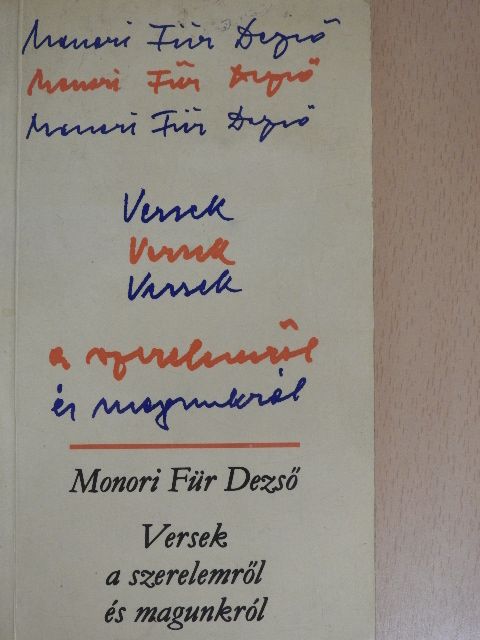 Monori Für Dezső
Monori Für Dezső
Monori Für Dezső
Versek
Versek
Versek
a szerelemről
és magunkról
Monori Für Dezső
Versek
a szerelemről
és magunkról